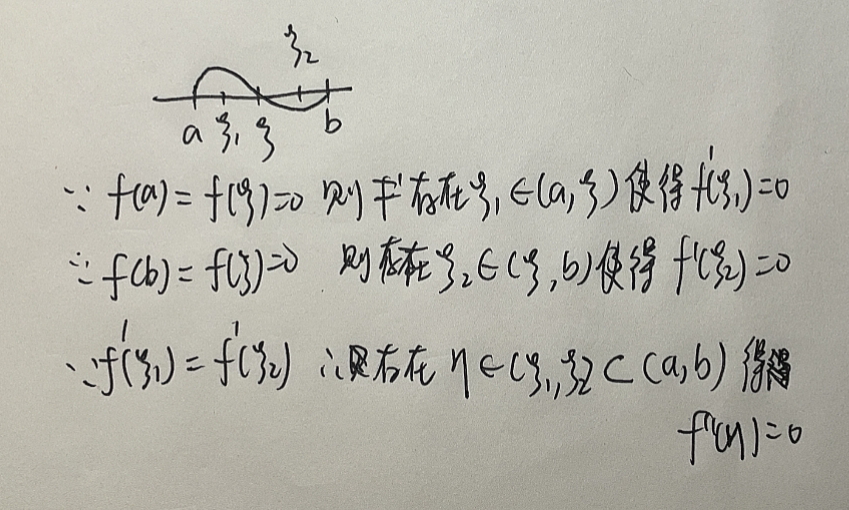 ξ₂
a ξ₁ ξ b
∵ f(a) = f(ξ)=0 则 存在ξ₁∈(a,ξ)使得f'(ξ₁)=0
∵ f(b) = f(ξ)=0 则存在ξ₂∈(ξ,b)使得 f'(ξ₂)=0
∵f'(ξ₁) = f'(ξ₂) ∴ 存在 η∈(ξ₁,ξ₂ ⊂ (a,b) 得
f''(η)=0